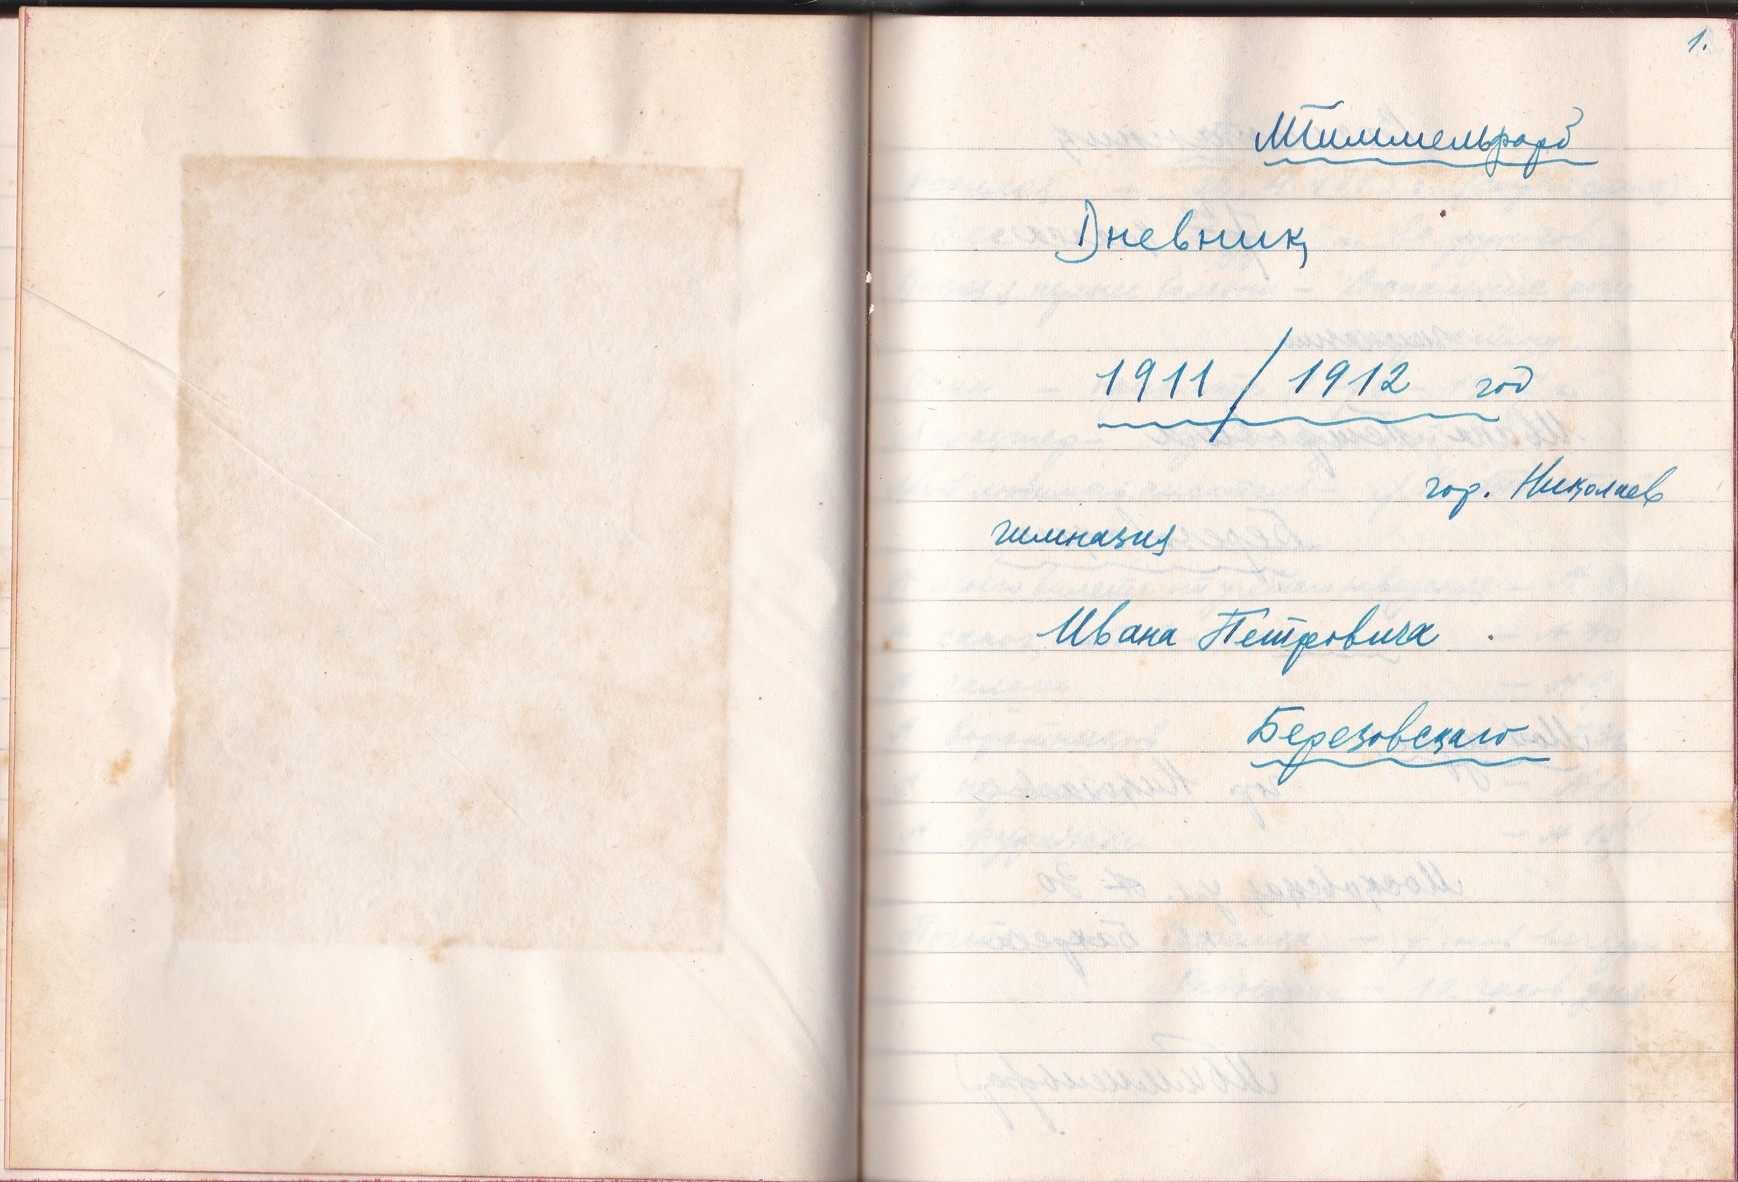 1.
МГиммельфарб
Дневник
1911/1912 год
гор. Николаев
гимназия
Ивана Петровича
Березовскаго